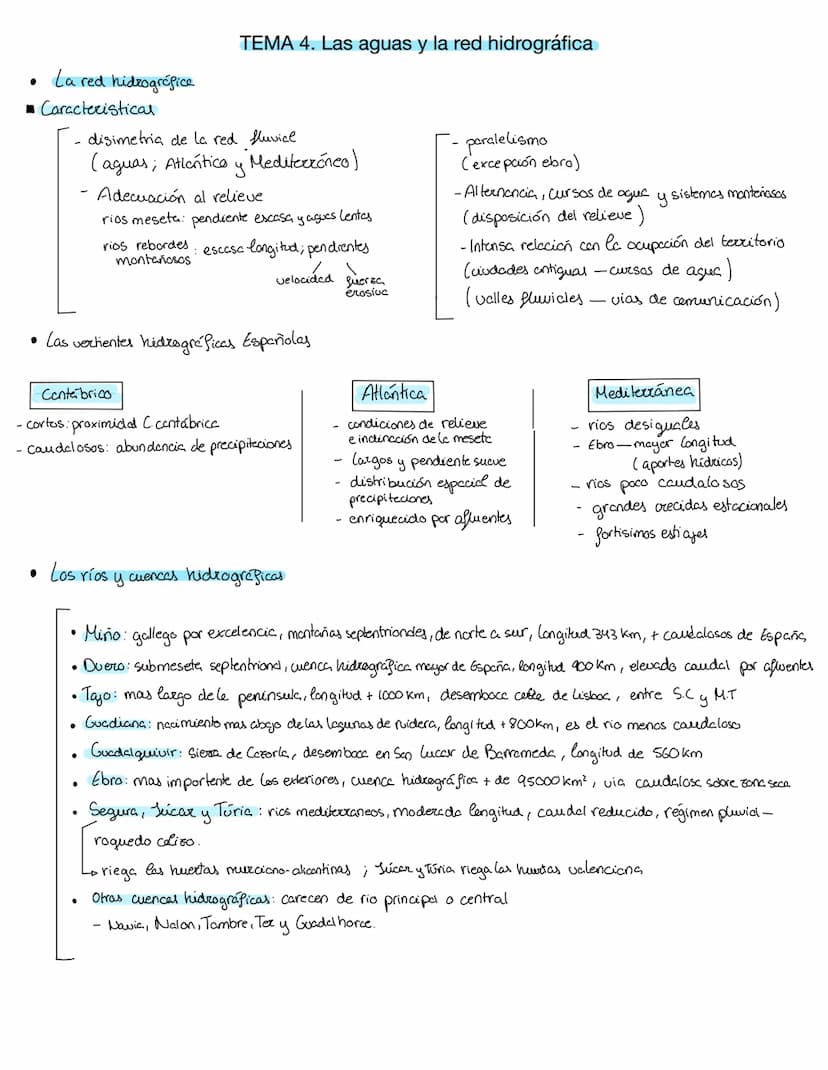 TEMA 4. Las aguas y la red hidrográfica
• La red hidrográfica
▪ Características
- disimetria de la red fluvial
(aguas; Atlántico y Mediterráneo)
- Adecuación al relieve
rios meseta: pendiente escasa y aguas lentas
rios rebordes montañosos: escasa longitud; pendientes
velocidad fuerza erosiva
- paralelismo
(excepción ebro)
- Alternancia, cursos de agua y sistemas montañosos
(disposición del relieve)
- Intensa relación con la ocupación del territorio
(ciudades antiguas — cursos de agua)
(valles fluviales — vias de comunicación)
• Las vertientes hidrográficas Españolas
Cantábrico
- cortos: proximidad C cantábrica
- caudalosos: abundancia de precipitaciones
Atlántica
- condiciones de relieve
e inclinación de la meseta
- largos y pendiente suave
- distribución espacial de
precipitaciones
- enriquecido por afluentes
Mediterránea
- rios desiguales
- Ebro — mayor longitud
(aportes hídricos)
- rios poco caudalosos
- grandes crecidas estacionales
- fortisimos estiajes
• Los ríos y cuencas hidrográficas
• Miño: gallego por excelencia, montañas septentrionales, de norte a sur, longitud 343 km, + caudalosos de España
• Duero: submeseta septentrional, cuenca hidrográfica mayor de España, longitud 900 km, elevado caudal por afluentes
• Tajo: mas largo de la península, longitud + 1000 km, desemboca cerca de Lisboa, entre S.C y M.T
• Guadiana: nacimiento mas abajo de las lagunas de ruidera, longitud + 800km, es el rio menos caudaloso
• Guadalquivir: Sierra de Cazorla, desemboca en San Lucar de Barrameda, longitud de 560 km
• Ebro: mas importante de los exteriores, cuenca hidrográfica + de 95000 km², via caudalosa sobre zona seca
• Segura, Júcar y Túria: rios mediterraneos, moderada longitud, caudal reducido, régimen pluvial —
roquedo calizo.
↳ riega las huertas murciano-alicantinas; Júcar y Túria riega las huertas valenciana
• Otras cuencas hidrográficas: carecen de rio principal o central
- Navia, Nalon, Tambre, Ter y Guadalhorce.